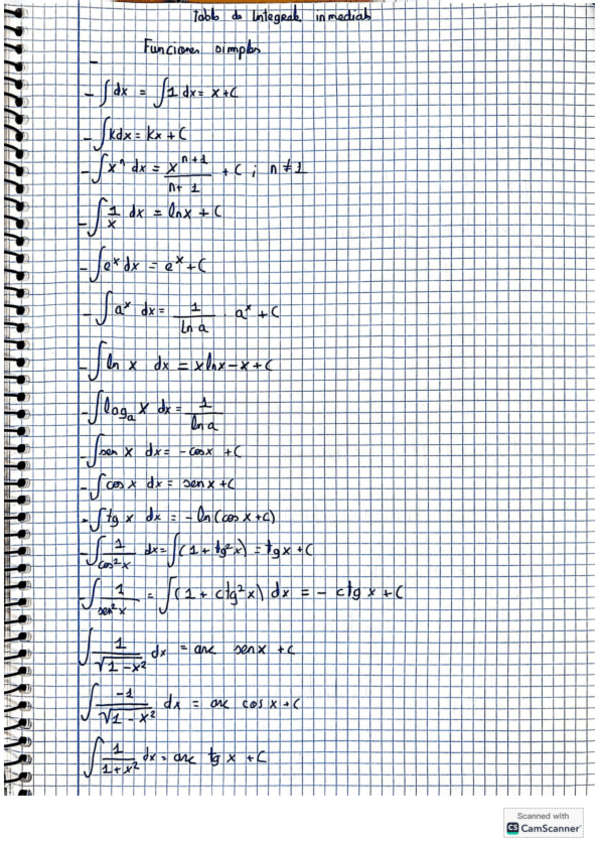 Tabla de Integrales inmediatas
Funciones simples
-
- ∫dx = ∫1 dx = x + C
- ∫kdx = kx + C
- ∫x^n dx = x^(n+1)/(n+1) + C ; n ≠ 1
- ∫1/x dx = lnx + C
- ∫e^x dx = e^x + C
- ∫a^x dx = 1/(ln a) · a^x + C
- ∫ln x dx = xlnx - x + C
- ∫log_a x dx = 1/(ln a)
- ∫sen x dx = -cosx + C
- ∫cos x dx = senx + C
- ∫tg x dx = -ln(cos x + C)
- ∫1/(cos²x) dx = ∫(1 + tg²x) = tgx + C
- ∫1/(sen²x) = ∫(1 + ctg²x) dx = - ctg x + C
∫1/√(1-x²) dx = arc senx + C
∫-1/√(1-x²) dx = arc cos x + C
∫1/(1+x²) dx = arc tg x + C
Scanned with
CS CamScanner